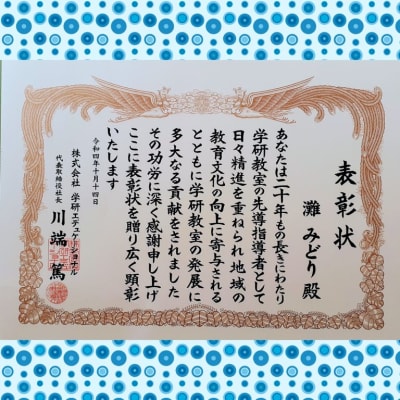 表彰状
灘 みどり 殿
あなたは二十年もの長きにわたり
学研教室の先導指導者として
日々精進を重ねられ地域の
教育文化の向上に寄与される
とともに学研教室の発展に
多大なる貢献をされました
その功労に深く感謝申し上げ
ここに表彰状を贈り広く顕彰
いたします
令和四年十月十四日
株式会社 学研エデュケーショナル
代表取締役社長 川端 篤